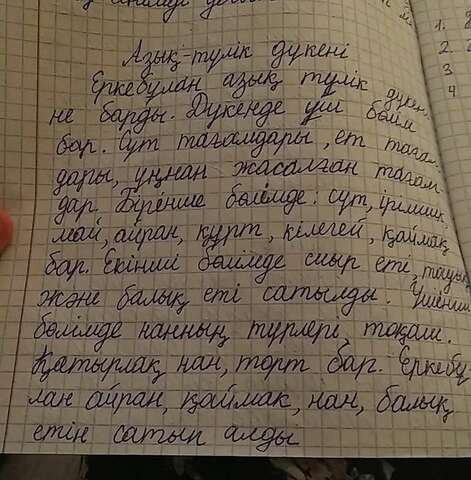 Азық-түлік дүкені
Еркебұлан азық түлік дүкен
не барды. Дүкенде үш бөлім
бар. Сүт тағамдары, ет таға
дары, ұннан жасалған тағам
дар. Бірінші бөлімде: сүт, ірімшік
май, айран, құрт, кілегей, қаймақ
бар. Екінші бөлімде сиыр еті, тауық
және балық еті сатылды. Үшінші
бөлімде нанның түрлері, тоқаш.
Қатырлақ нан, торт бар. Еркебұ
лан айран, қаймақ, нан, балық
етін сатып алды
1.
2.
3
4